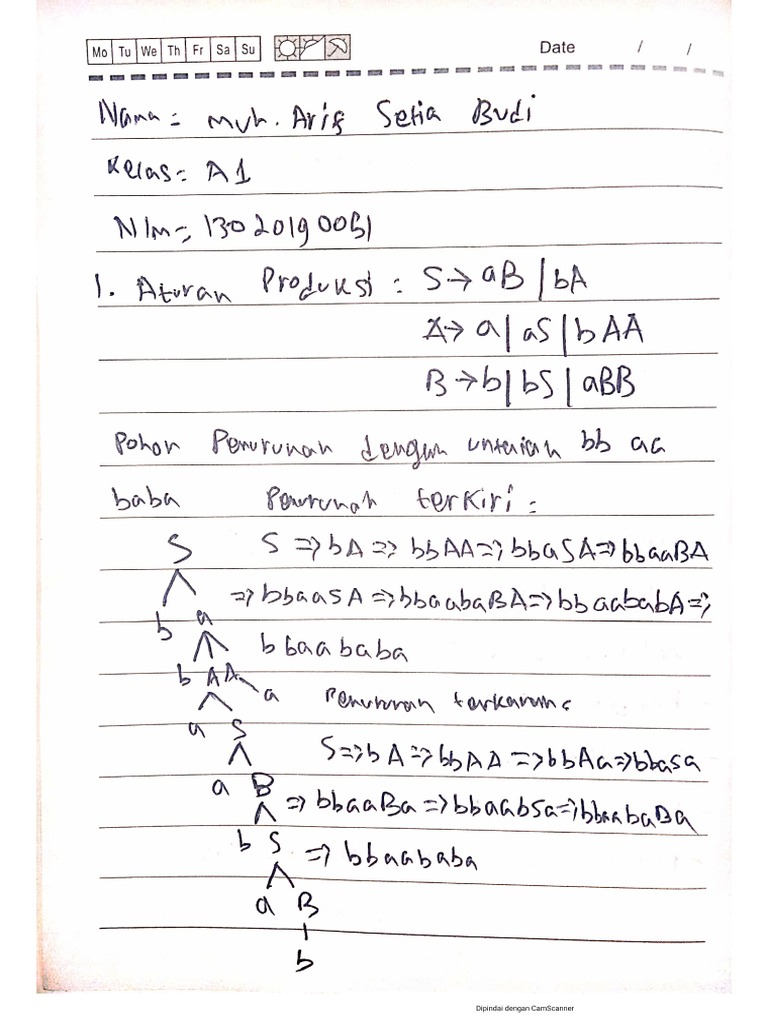 Mo Tu We Th Fr Sa Su Date / /
Nama = Muh. Arif Setia Budi
Kelas = A1
NIm = 13020190051
1. Aturan Produksi : S → aB | bA
A → a | aS | bAA
B → b | bS | aBB
Pohon Penurunan dengan untaian bb aa
baba Penurunan terkiri :
S S ⇒ bA ⇒ bbAA ⇒ bbaSA ⇒ bbaaBA
⇒ bbaasA ⇒ bbaabaBA ⇒ bbaababA ⇒
b a
bbaababa
b A A a
Penurunan terkanan :
a S
S ⇒ bA ⇒ bbAA ⇒ bbAa ⇒ bbasa
a B
⇒ bbaaBa ⇒ bbaabSa ⇒ bbaabaBa
b S
⇒ bbaababa
a B
b
Dipindai dengan CamScanner